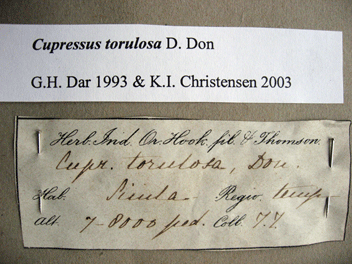 Cupressus torulosa D. Don
G.H. Dar 1993 & K.I. Christensen 2003
Herb. Ind. Or. Hook. fil. & Thomson.
Cupr. torulosa, Don.
Hab. Simla Regio temp
Alt. 7-8000 ped. Coll. T.T.